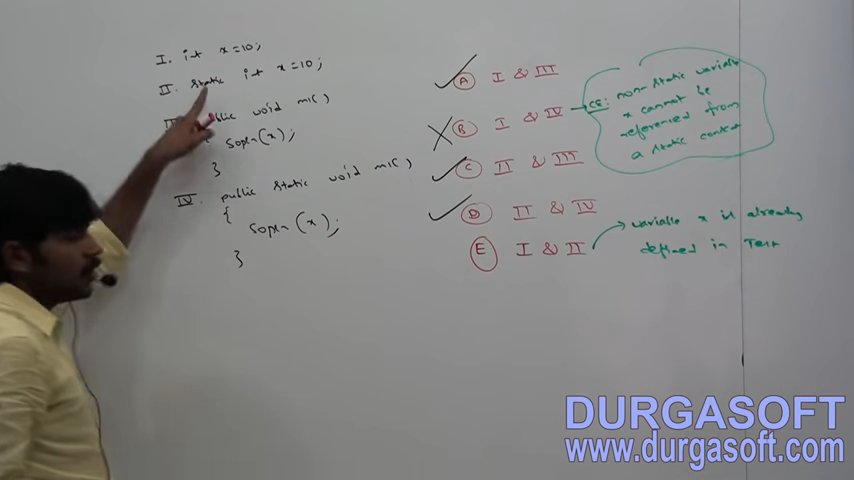 I. int x=10;
II. static int x=10;
public void m1()
{ Sopln(x);
}
IV. public static void m1()
{
Sopln(x);
}
A I & III
B I & IV
C II & III
D II & IV
E I & II
CE: non-static variable
x cannot be
referenced from
a static context
variable x is already
defined in Test
DURGASOFT
www.durgasoft.com